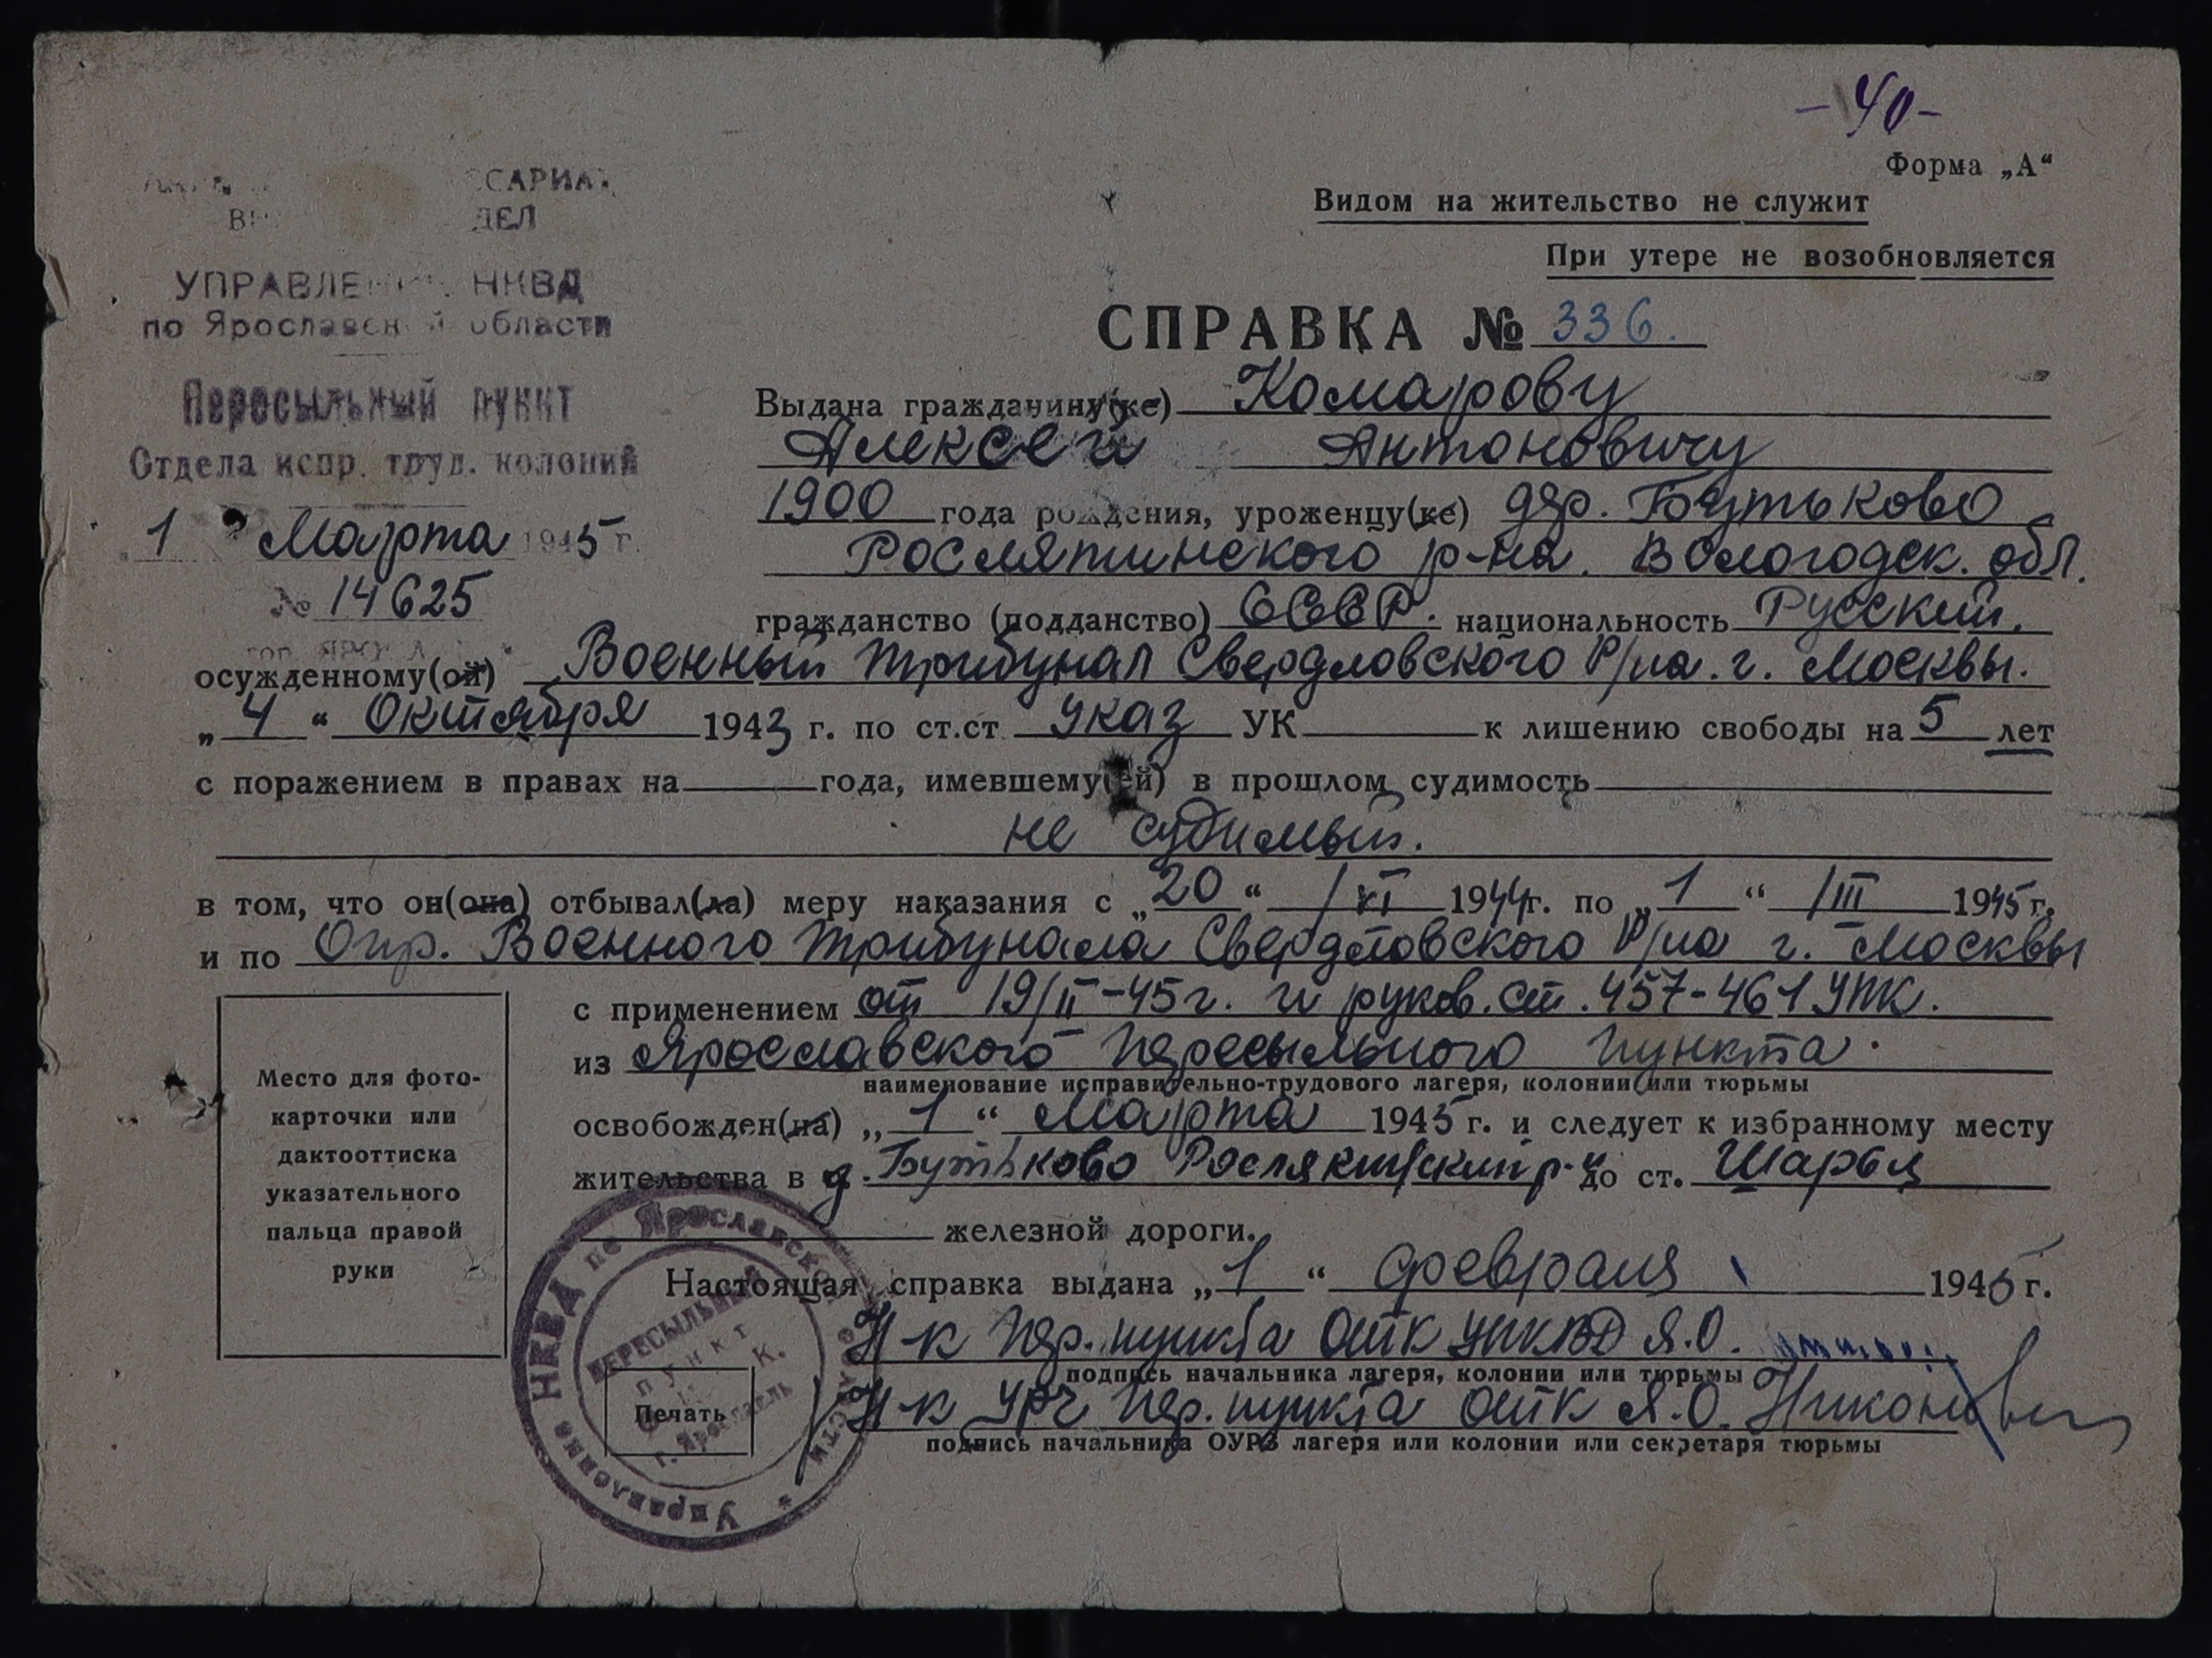 -40-
Форма „А“
Видом на жительство не служит
При утере не возобновляется
УПРАВЛЕ НКВД
по Ярославской области
Пересыльный пункт
Отдела испр. труд. колоний
„1 Марта 1945 г.
№ 14625
СПРАВКА № 336.
Выдана гражданину(ке) Комарову
Алексей Антоновичу
1900 года рождения, уроженцу(ке) дер. Бутьково
Рослятинского р-на. Вологодск. обл.
гражданство (подданство) СССР. национальность Русский.
осужденному(ой) Военный трибунал Свердловского Р/на. г. Москвы.
„4“ Октября 1943 г. по ст.ст Указ УК к лишению свободы на 5 лет
с поражением в правах на года, имевшему(ей) в прошлом судимость
не судимый.
в том, что он(она) отбывал(ла) меру наказания с „20“ /VI 1944г. по „1“ /III 1945 г.
и по Опр. Военного трибунала Свердловского Р/на г. Москвы
с применением от 19/II-45г. и руков. ст. 457-461 УПК.
из Ярославского Пересыльного Пункта.
наименование исправительно-трудового лагеря, колонии или тюрьмы
освобожден(на) „1“ Марта 1945 г. и следует к избранному месту
жительства в д. Бутьково р-н до ст. Шарья
железной дороги.
Настоящая справка выдана „1“ февраля 1945 г.
Н-к Пер. пункта ОИТК УНКВД Я.О.
подпись начальника лагеря, колонии или тюрьмы
Н-к УРЧ Пер. пункта ОИТК Я.О.
подпись начальника ОУРЗ лагеря или колонии или секретаря тюрьмы
Место для фото-
карточки или
дактооттиска
указательного
пальца правой
руки
Печать
Управление НКВД по Ярославской области
ПЕРЕСЫЛЬНЫЙ
пункт
г. Ярославль